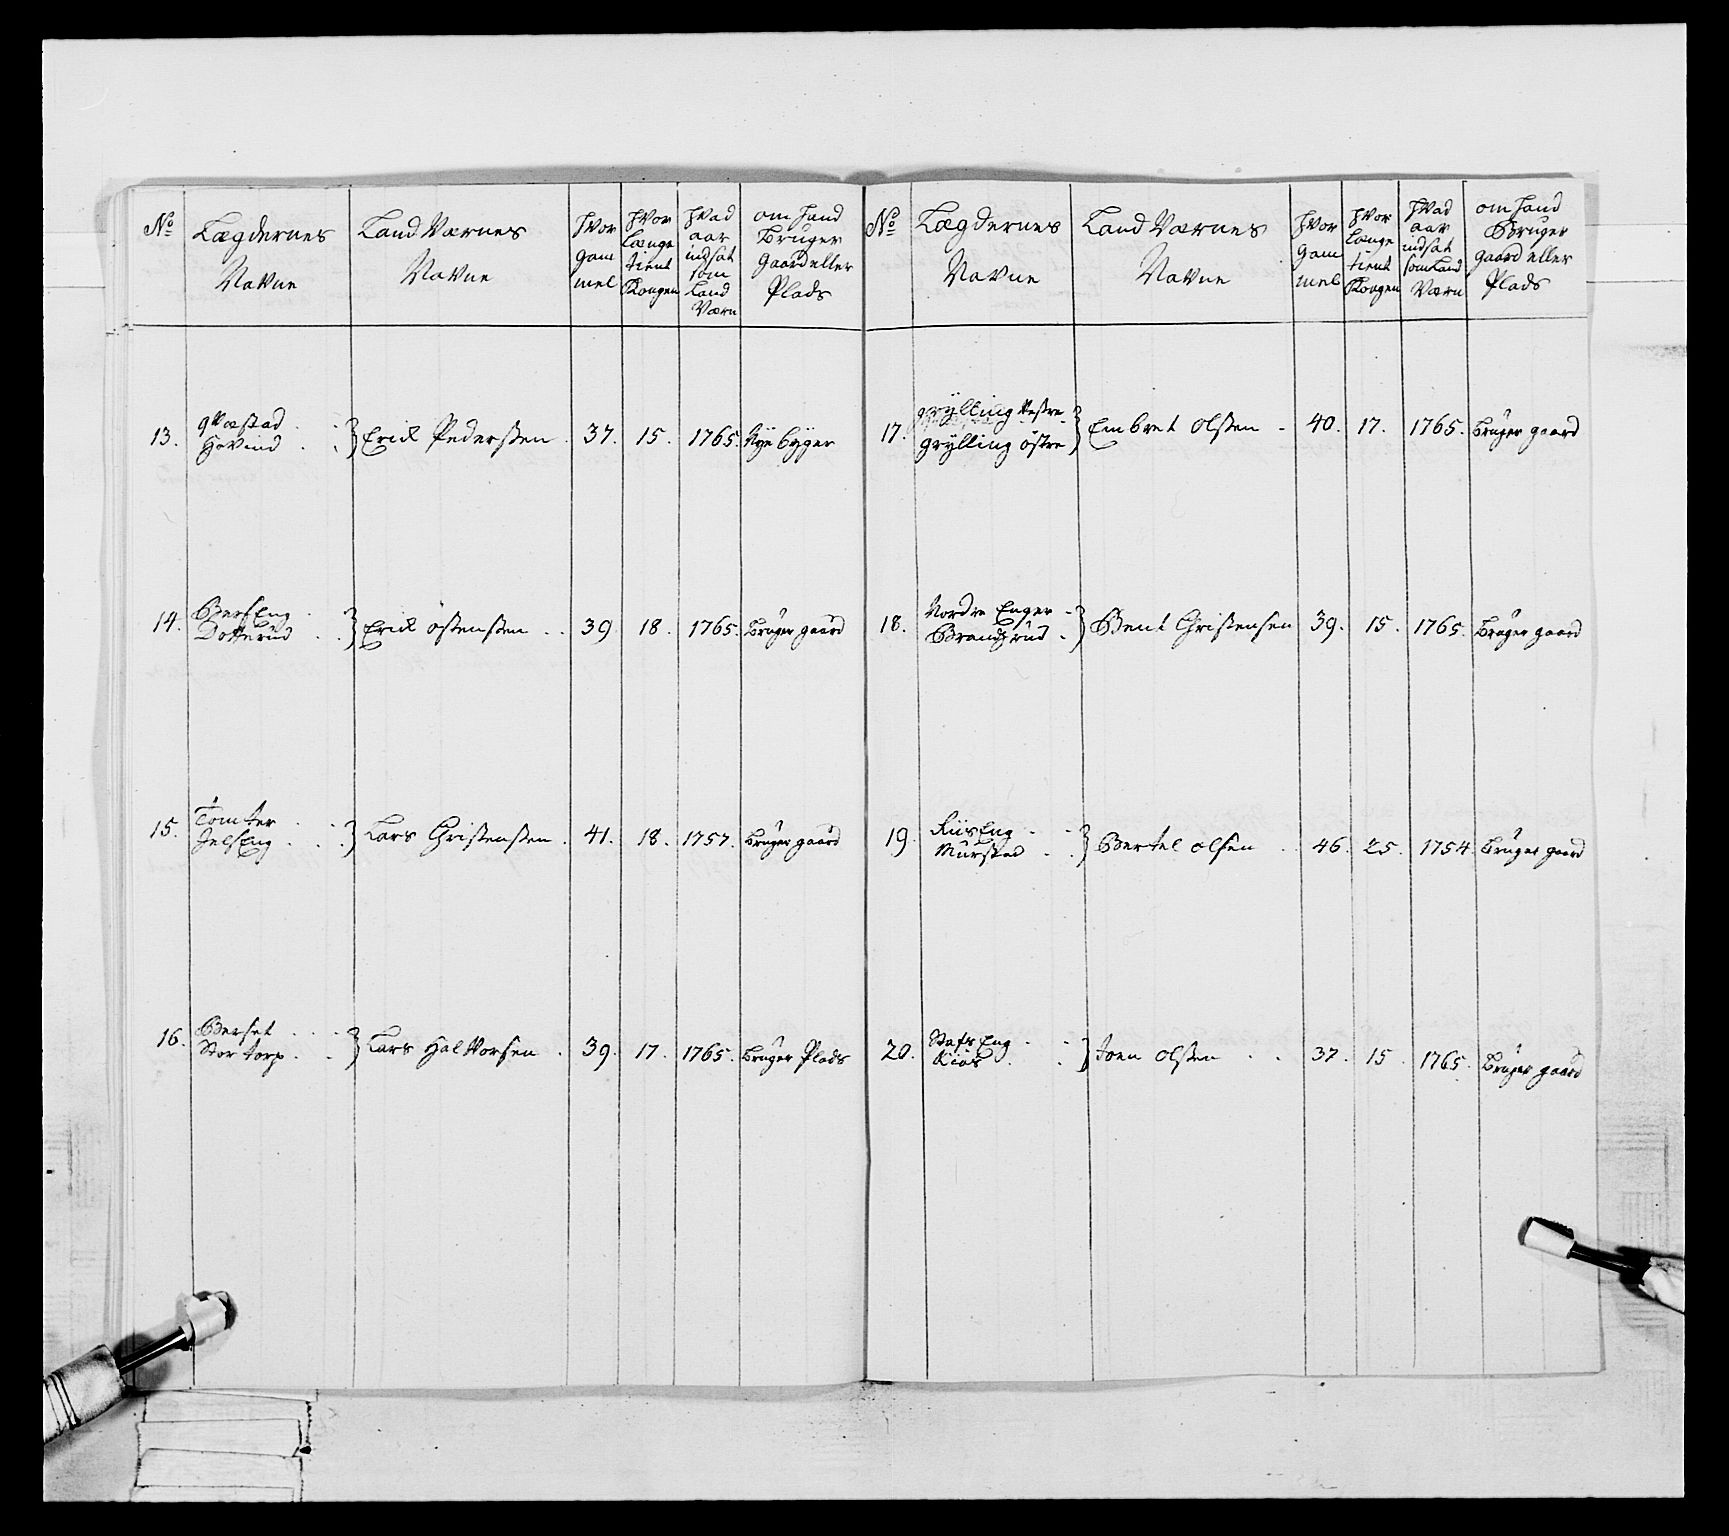 No
Lægdernes
Navne
Land Værnes
Navne
hvor
gam
mel
hvor
længe
tient
Kongen
hvad
aar
indsat
som
Land
Værn
om hand
Bruger
gaard eller
Plads
13. Qvæstad
Hovind
Erick Pedersen. 37. 15. 1765. Nye byger
14. BersEng
Dotterud
Erick Østensen. 39 18. 1765. bruger gaard
15. Tomter
JelsEng
Lars Christensen. 41. 18. 1757. bruger gaard
16. Berset
Stortorp
Lars Halvorsen. 39. 17. 1765. bruger Plads
No
Lægdernes
Navne
Land Værnes
Navne
hvor
gam
mel
hvor
længe
tient
Kongen
hvad
aar
indsat
som Land
Værn
om hand
Bruger
gaard eller
Plads
17. grylling Vestre
grylling østre
Embret Olsen 40. 17. 1765. bruger gaard
18. Nordre Enger
Brandsrud
Bent Christensen 39. 15. 1765. bruger gaard
19. RiisEng
Murstad
Bertel Olsen 46. 25. 1754. bruger gaard
20. StafsEng
Kiøs
Joen Olsen 37. 15. 1765. bruger gaard